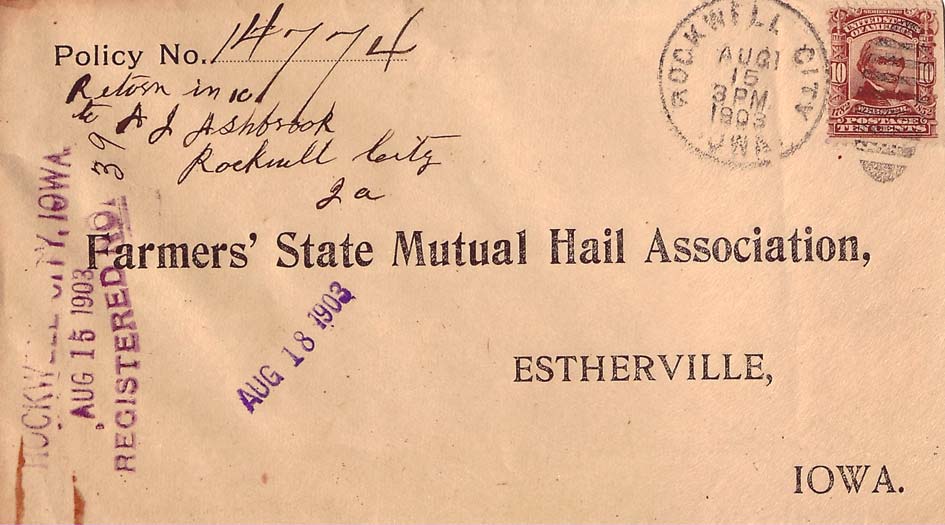 Policy No. 14774
Return in 10
to A J Ashbrook
Rockwell City
Ia
ROCKWELL CITY
AUG 15
3 PM
1903
IOWA
UNITED STATES
OF AMERICA
10 10
WEBSTER
POSTAGE
TEN CENTS
ROCKWELL CITY, IOWA
AUG 15 1903
REGISTERED NO. 39
Farmers' State Mutual Hail Association,
AUG 18 1903
ESTHERVILLE,
IOWA.